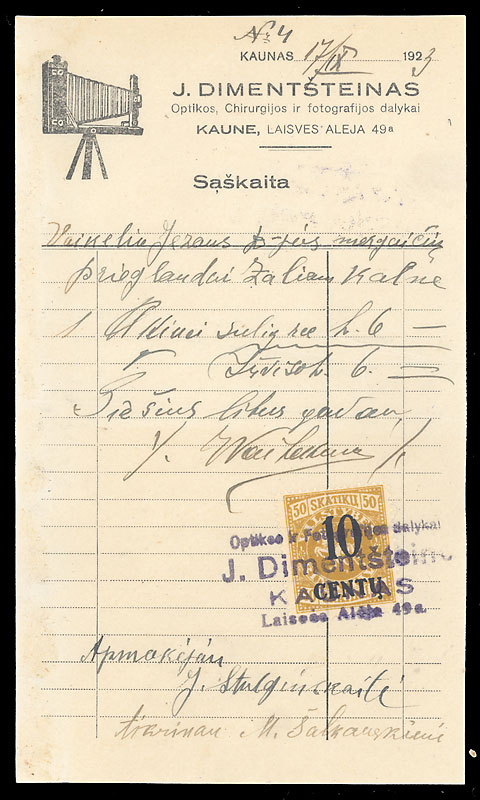 № 4
KAUNAS 17/IX 1923
J. DIMENTŠTEINAS
Optikos, Chirurgijos ir fotografijos dalykai
KAUNE, LAISVĖS ALĖJA 49a
Sąskaita
Vaikelio Jėzaus d-jos mergaičių
prieglaudai Žaliam Kalne
1 Akiniai sulig rec L. 6 —
Viso L. 6. —
Šešius litus gavau
50 SKATIKŲ 50
10
CENTŲ
Optikos ir Fotografijos dalykai
J. Dimentšteino
KAUNAS
Laisvės Alėja 49a.
Apmokėjau
J. Stulginskaitė
tikrinau M. Šalkauskienė